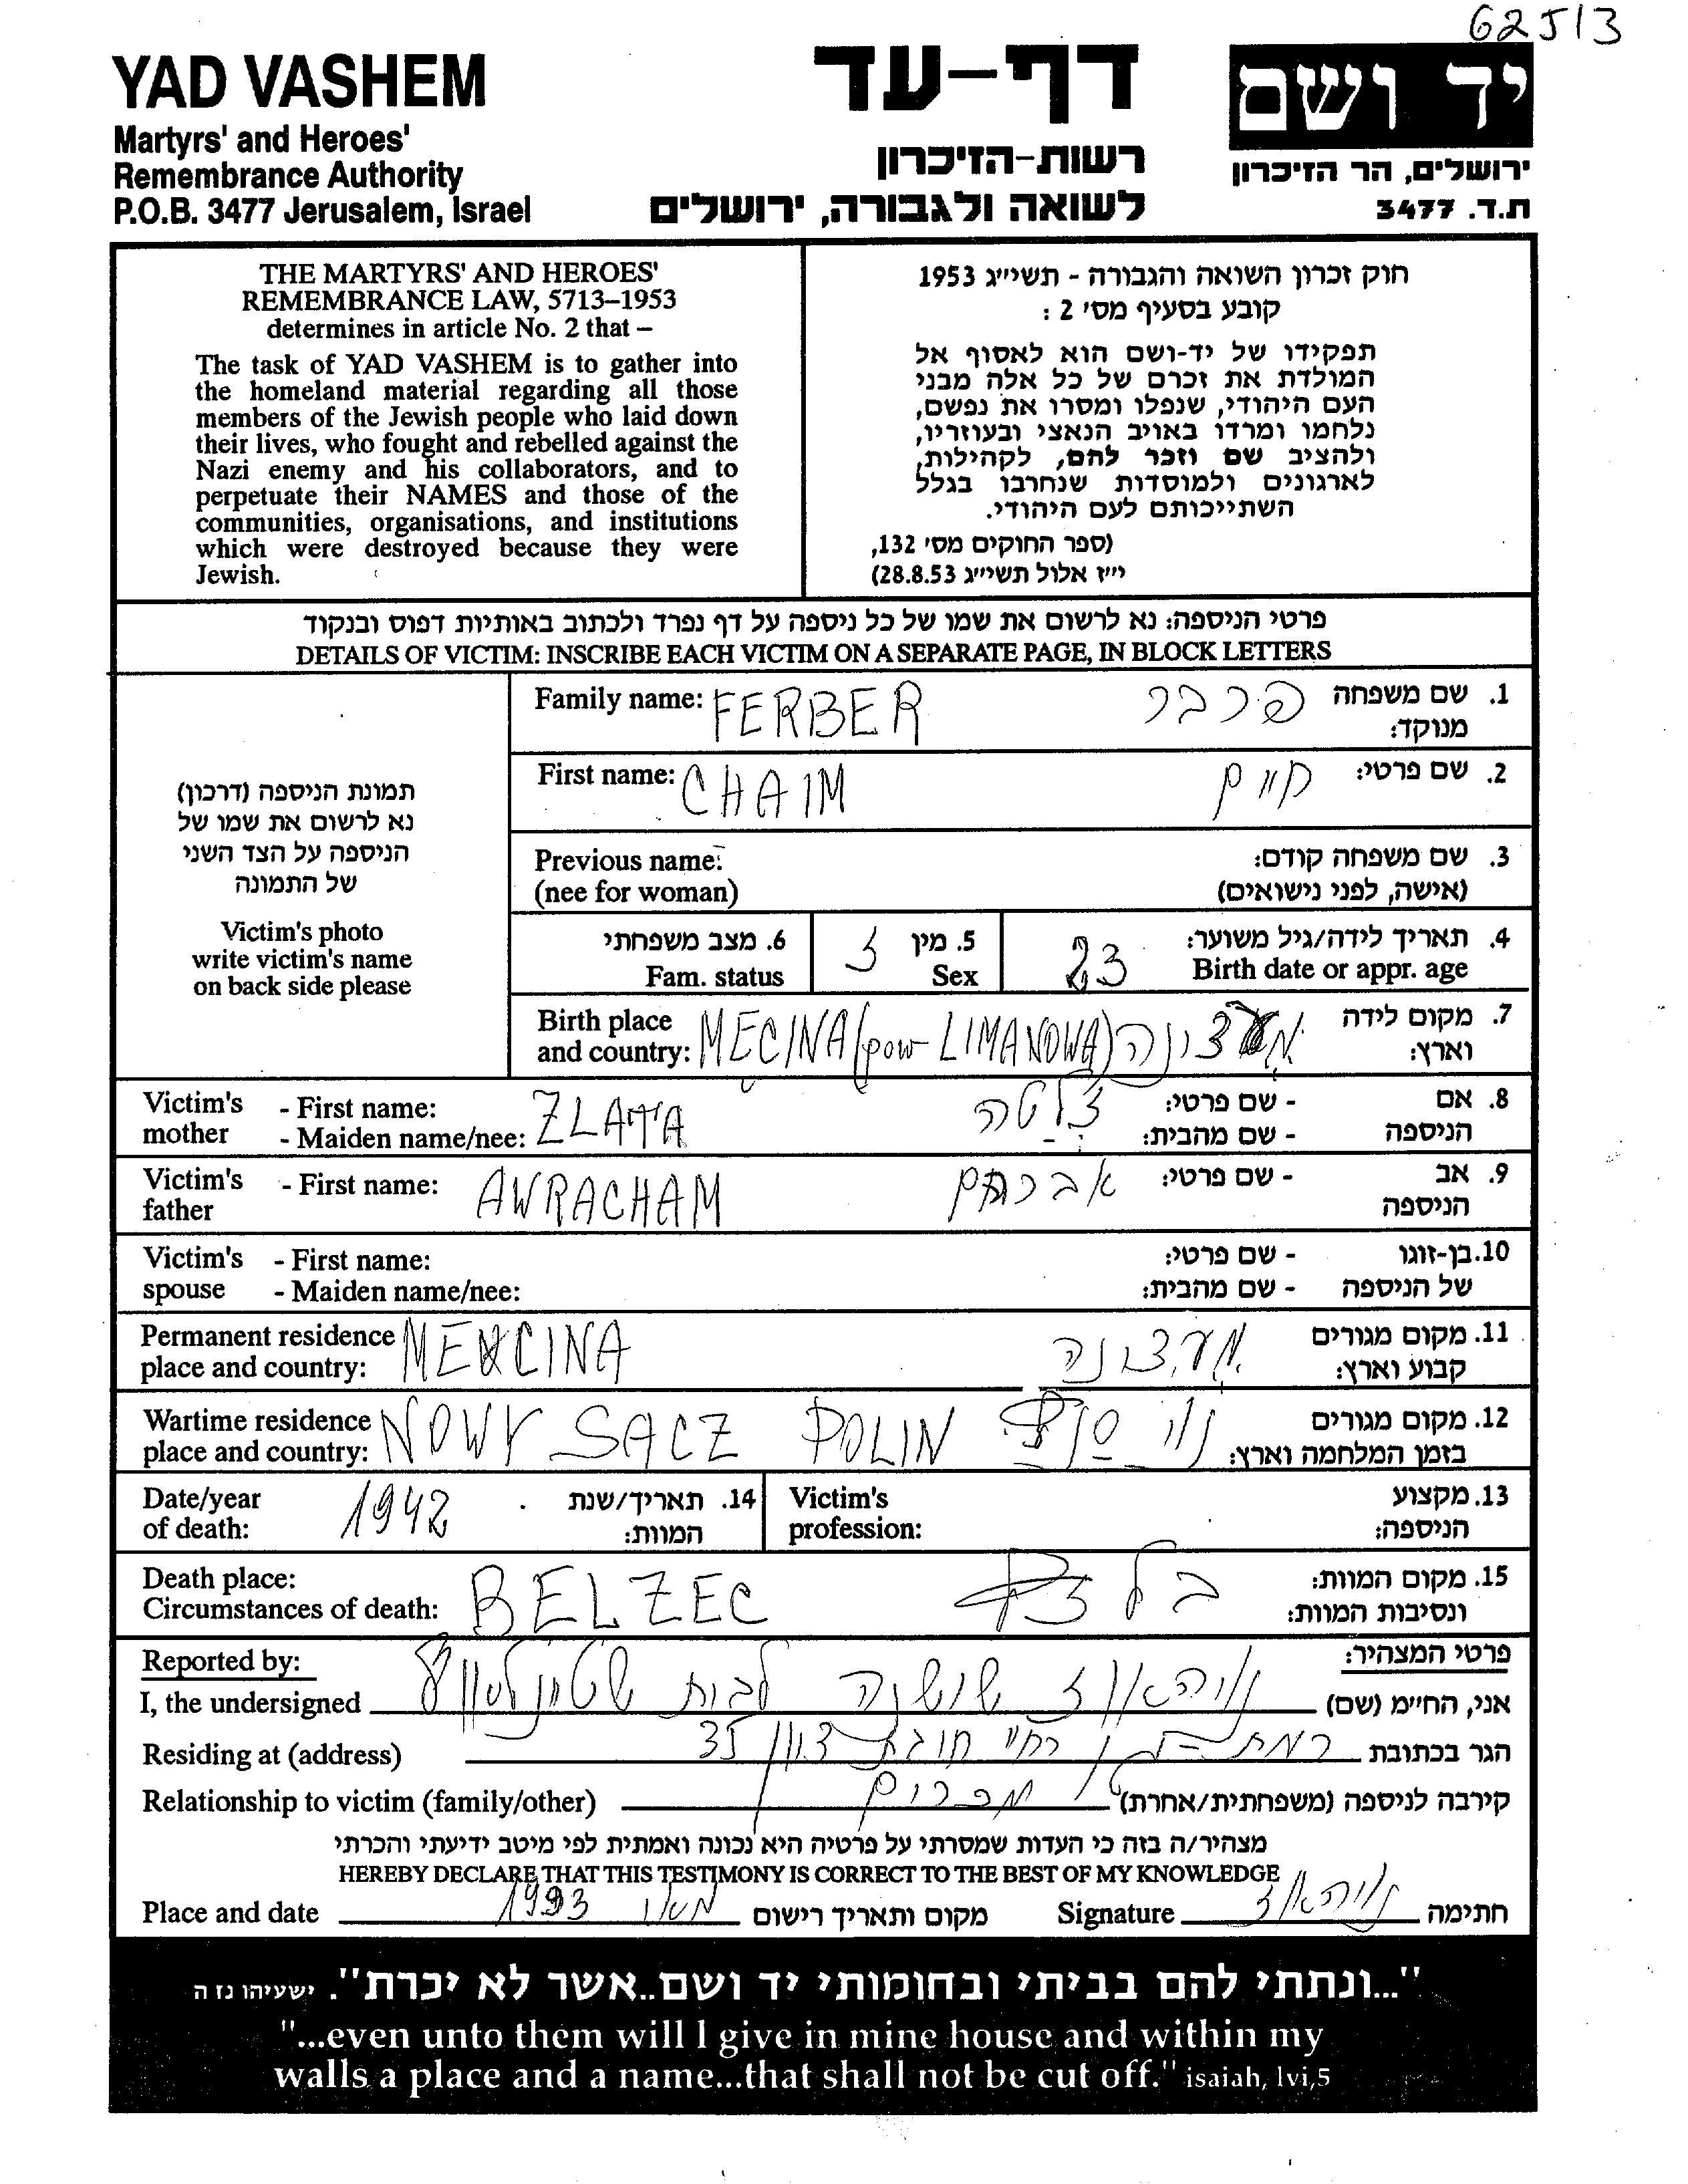 62513
YAD VASHEM
Martyrs' and Heroes'
Remembrance Authority
P.O.B. 3477 Jerusalem, Israel
דף-עד
רשות-הזיכרון
לשואה ולגבורה, ירושלים
יד ושם
ירושלים, הר הזיכרון
ת.ד. 3477
THE MARTYRS' AND HEROES'
REMEMBRANCE LAW, 5713–1953
determines in article No. 2 that –
The task of YAD VASHEM is to gather into
the homeland material regarding all those
members of the Jewish people who laid down
their lives, who fought and rebelled against the
Nazi enemy and his collaborators, and to
perpetuate their NAMES and those of the
communities, organisations, and institutions
which were destroyed because they were
Jewish.
חוק זכרון השואה והגבורה - תשי״ג 1953
קובע בסעיף מס׳ 2 :
תפקידו של יד-ושם הוא לאסוף אל
המולדת את זכרם של כל אלה מבני
העם היהודי, שנפלו ומסרו את נפשם,
נלחמו ומרדו באויב הנאצי ובעוזריו,
ולהציב שם וזכר להם, לקהילות,
לארגונים ולמוסדות שנחרבו בגלל
השתייכותם לעם היהודי.
(ספר החוקים מס׳ 132,
י״ז אלול תשי״ג 28.8.53)
פרטי הניספה: נא לרשום את שמו של כל ניספה על דף נפרד ולכתוב באותיות דפוס ובנקוד
DETAILS OF VICTIM: INSCRIBE EACH VICTIM ON A SEPARATE PAGE, IN BLOCK LETTERS
תמונת הניספה (דרכון)
נא לרשום את שמו של
הניספה על הצד השני
של התמונה
Victim's photo
write victim's name
on back side please
Family name: FERBER פרבר 1. שם משפחה
מנוקד:
First name: CHAIM חיים 2. שם פרטי:
Previous name: 3. שם משפחה קודם:
(nee for woman) (אישה, לפני נישואים)
6. מצב משפחתי 5. מין ז 23 4. תאריך לידה/גיל משוער:
Fam. status Sex Birth date or appr. age
Birth place 7. מקום לידה
and country: MĘCINA (pow LIMANOWA) וארץ:
Victim's - First name: 8. אם - שם פרטי:
mother - Maiden name/nee: ZLATA זלטה הניספה - שם מהבית:
Victim's - First name: AWRACHAM אברהם 9. אב - שם פרטי:
father הניספה
Victim's - First name: 10. בן-זוגו - שם פרטי:
spouse - Maiden name/nee: של הניספה - שם מהבית:
Permanent residence 11. מקום מגורים
place and country: קבוע וארץ:
Wartime residence 12. מקום מגורים
place and country: NOWY SACZ POLIN בזמן המלחמה וארץ:
Date/year 1942 14. תאריך/שנת Victim's 13. מקצוע
of death: המוות: profession: הניספה:
Death place: 15. מקום המוות:
Circumstances of death: BELZEC בלזץ ונסיבות המוות:
Reported by: פרטי המצהיר:
I, the undersigned שושנה לבית אני, החי״מ (שם)
Residing at (address) 35 רמת - גן רח׳ הגר בכתובת
Relationship to victim (family/other) מכרים קירבה לניספה (משפחתית/אחרת)
מצהיר/ה בזה כי העדות שמסרתי על פרטיה היא נכונה ואמתית לפי מיטב ידיעתי והכרתי
HEREBY DECLARE THAT THIS TESTIMONY IS CORRECT TO THE BEST OF MY KNOWLEDGE
Place and date 1993 מקום ותאריך רישום Signature חתימה
"...ונתתי להם בביתי ובחומותי יד ושם..אשר לא יכרת". ישעיהו נז ה
"...even unto them will I give in mine house and within my
walls a place and a name...that shall not be cut off." isaiah, lvi,5